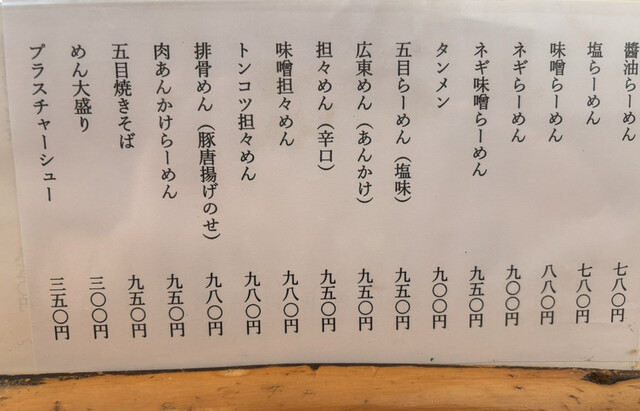 醤油らーめん 七八〇円
塩らーめん 七八〇円
味噌らーめん 八八〇円
ネギらーめん 九〇〇円
ネギ味噌らーめん 九五〇円
タンメン 九〇〇円
五目らーめん（塩味） 九五〇円
広東めん（あんかけ） 九五〇円
担々めん（辛口） 九五〇円
味噌担々めん 九八〇円
トンコツ担々めん 九八〇円
排骨めん（豚唐揚げのせ） 九八〇円
肉あんかけらーめん 九五〇円
五目焼きそば 九五〇円
めん大盛り 三〇〇円
プラスチャーシュー 三五〇円